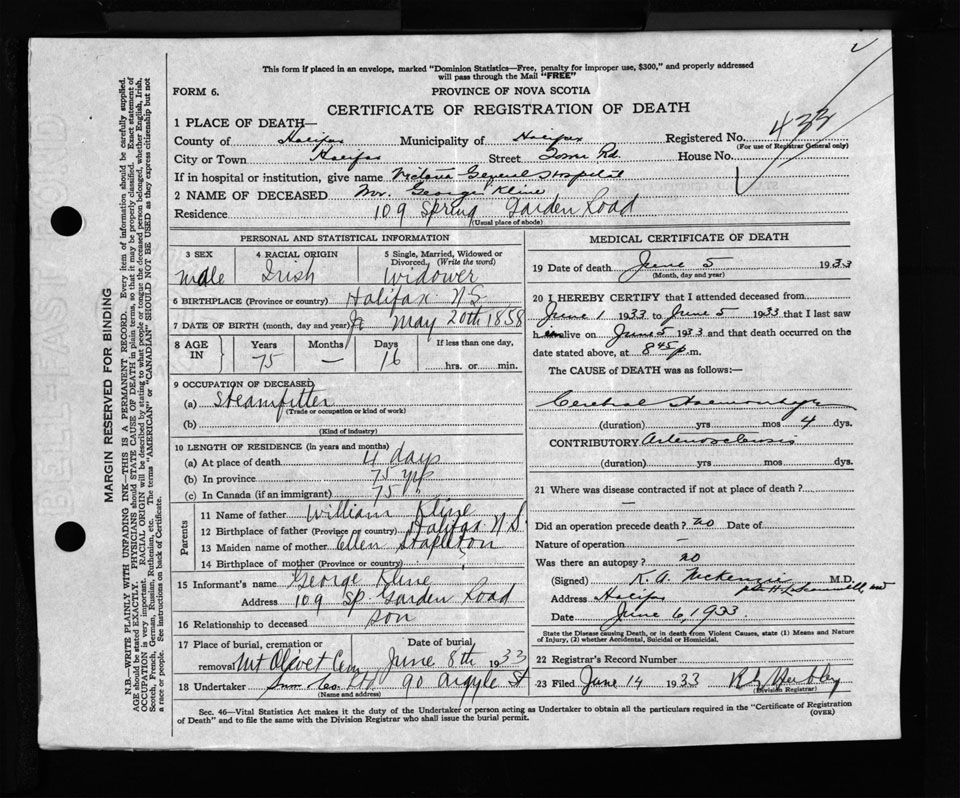 This form if placed in an envelope, marked "Dominion Statistics—Free, penalty for improper use, $300," and properly addressed
will pass through the Mail "FREE"
FORM 6. PROVINCE OF NOVA SCOTIA
CERTIFICATE OF REGISTRATION OF DEATH
1 PLACE OF DEATH—
County of Halifax Municipality of Halifax Registered No. 433
(For use of Registrar General only)
City or Town Halifax Street Tower Rd. House No.
If in hospital or institution, give name Victoria General Hospital
2 NAME OF DECEASED Mr. George Kline
Residence 109 Spring Garden Road
(Usual place of abode)
PERSONAL AND STATISTICAL INFORMATION
3 SEX 4 RACIAL ORIGIN 5 Single, Married, Widowed or
Divorced. (Write the word)
Male Irish Widower
6 BIRTHPLACE (Province or country) Halifax N.S.
7 DATE OF BIRTH (month, day and year) May 20th 1858
8 AGE IN Years Months Days If less than one day,
75 — 16 hrs. or min.
9 OCCUPATION OF DECEASED
(a) Steamfitter
(Trade or occupation or kind of work)
(b)
(Kind of industry)
10 LENGTH OF RESIDENCE (in years and months)
(a) At place of death 4 days
(b) In province 75 yrs
(c) In Canada (if an immigrant) 75
Parents
11 Name of father William Kline
12 Birthplace of father (Province or country) Halifax N S
13 Maiden name of mother Ellen Stapleton
14 Birthplace of mother (Province or country) ?
15 Informant's name George Kline
Address 109 Sp. Garden Road
16 Relationship to deceased Son
17 Place of burial, cremation or Date of burial,
removal Mt Olivet Cem June 8th 1933
18 Undertaker Snow Co. Ltd. 90 Argyle St
(Name and address)
MEDICAL CERTIFICATE OF DEATH
19 Date of death June 5 1933
(Month, day and year)
20 I HEREBY CERTIFY that I attended deceased from
June 1 1933 to June 5 1933 that I last saw
him alive on June 5 1933 and that death occurred on the
date stated above, at 8 45 p.m.
The CAUSE of DEATH was as follows:—
Cerebral Haemorrhage
(duration) yrs mos 4 dys.
CONTRIBUTORY Arteriosclerosis
(duration) yrs. mos dys.
21 Where was disease contracted if not at place of death?
—
Did an operation precede death? no Date of
Nature of operation —
Was there an autopsy? no
(Signed) K. A. McKenzie M.D.
Address Halifax
Date June 6, 1933
State the Disease causing Death, or in death from Violent Causes, state (1) Means and Nature
of Injury, (2) whether Accidental, Suicidal or Homicidal.
22 Registrar's Record Number
23 Filed June 14 1933
(Division Registrar)
Sec. 46—Vital Statistics Act makes it the duty of the Undertaker or person acting as Undertaker to obtain all the particulars required in the "Certificate of Registration
of Death" and to file the same with the Division Registrar who shall issue the burial permit. (OVER)
MARGIN RESERVED FOR BINDING
N.B.—WRITE PLAINLY WITH UNFADING INK—THIS IS A PERMANENT RECORD. Every item of information should be carefully supplied.
AGE should be stated EXACTLY. PHYSICIANS should STATE CAUSE OF DEATH in plain terms, so that it may be properly classified. Exact statement of
OCCUPATION is very important. RACIAL ORIGIN will be described by stating to what people or tongue the deceased person belonged, whether English, Irish,
Scotch, French, German, Russian, Ruthenian, etc. The terms "AMERICAN" or "CANADIAN" SHOULD NOT BE USED as they express citizenship but not
a race or people. See instructions on back of Certificate.